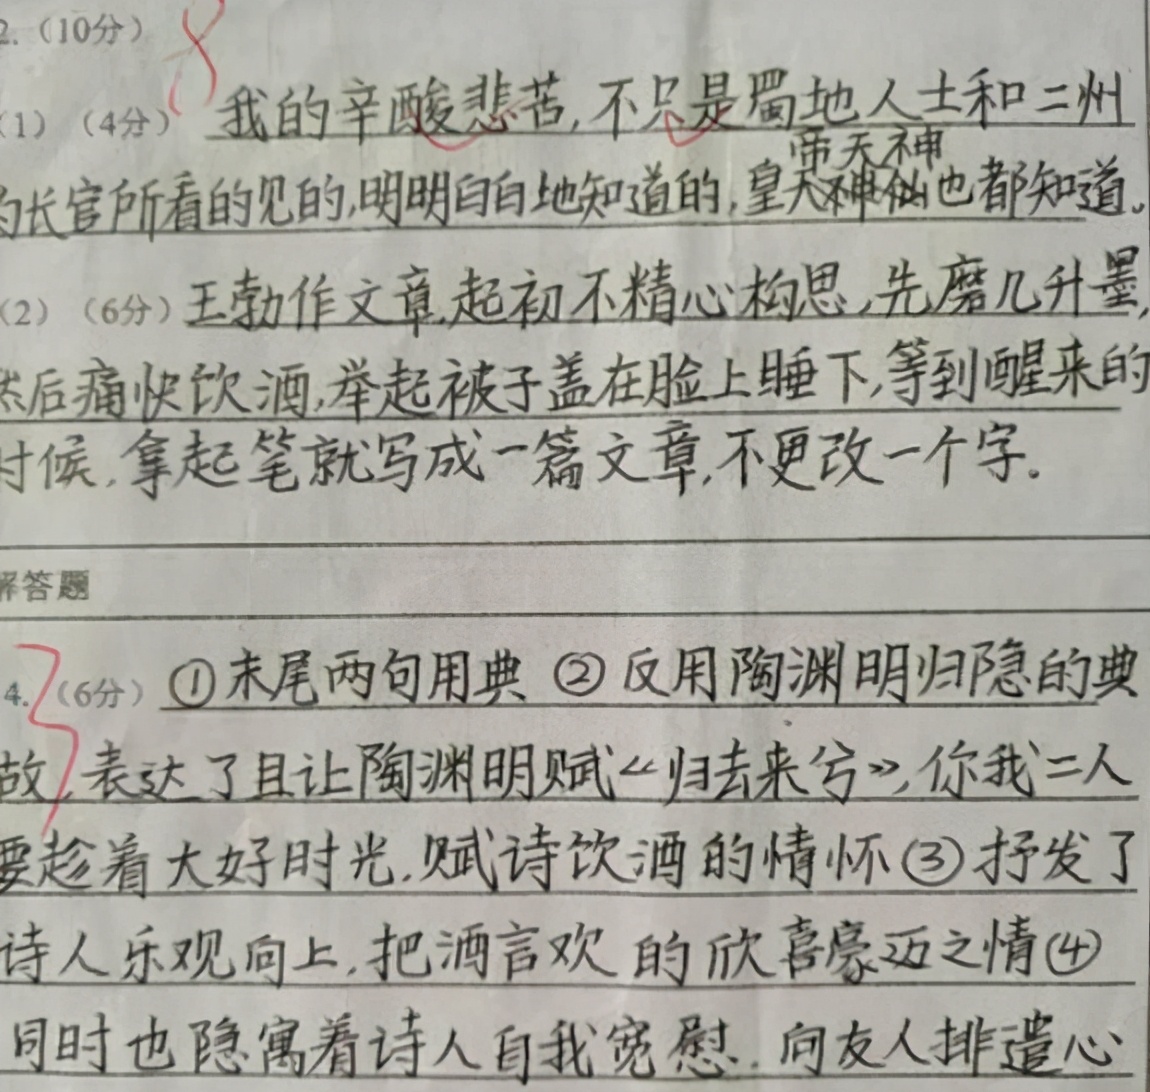 2.（10分） 8
（1）（4分） 我的辛酸悲苦,不只是蜀地人士和二州
帝天神
的长官所看的见的,明明白白地知道的,皇天神仙也都知道。
（2）（6分） 王勃作文章,起初不精心构思,先磨几升墨,
然后痛快饮酒,举起被子盖在脸上睡下,等到醒来的
时候,拿起笔就写成一篇文章,不更改一个字.
解答题
4.（6分） 3 ①末尾两句用典 ②反用陶渊明归隐的典
故,表达了且让陶渊明赋《归去来兮》,你我二人
要趁着大好时光,赋诗饮酒的情怀③抒发了
诗人乐观向上,把酒言欢的欣喜豪迈之情④
同时也隐寓着诗人自我宽慰.向友人排遣心